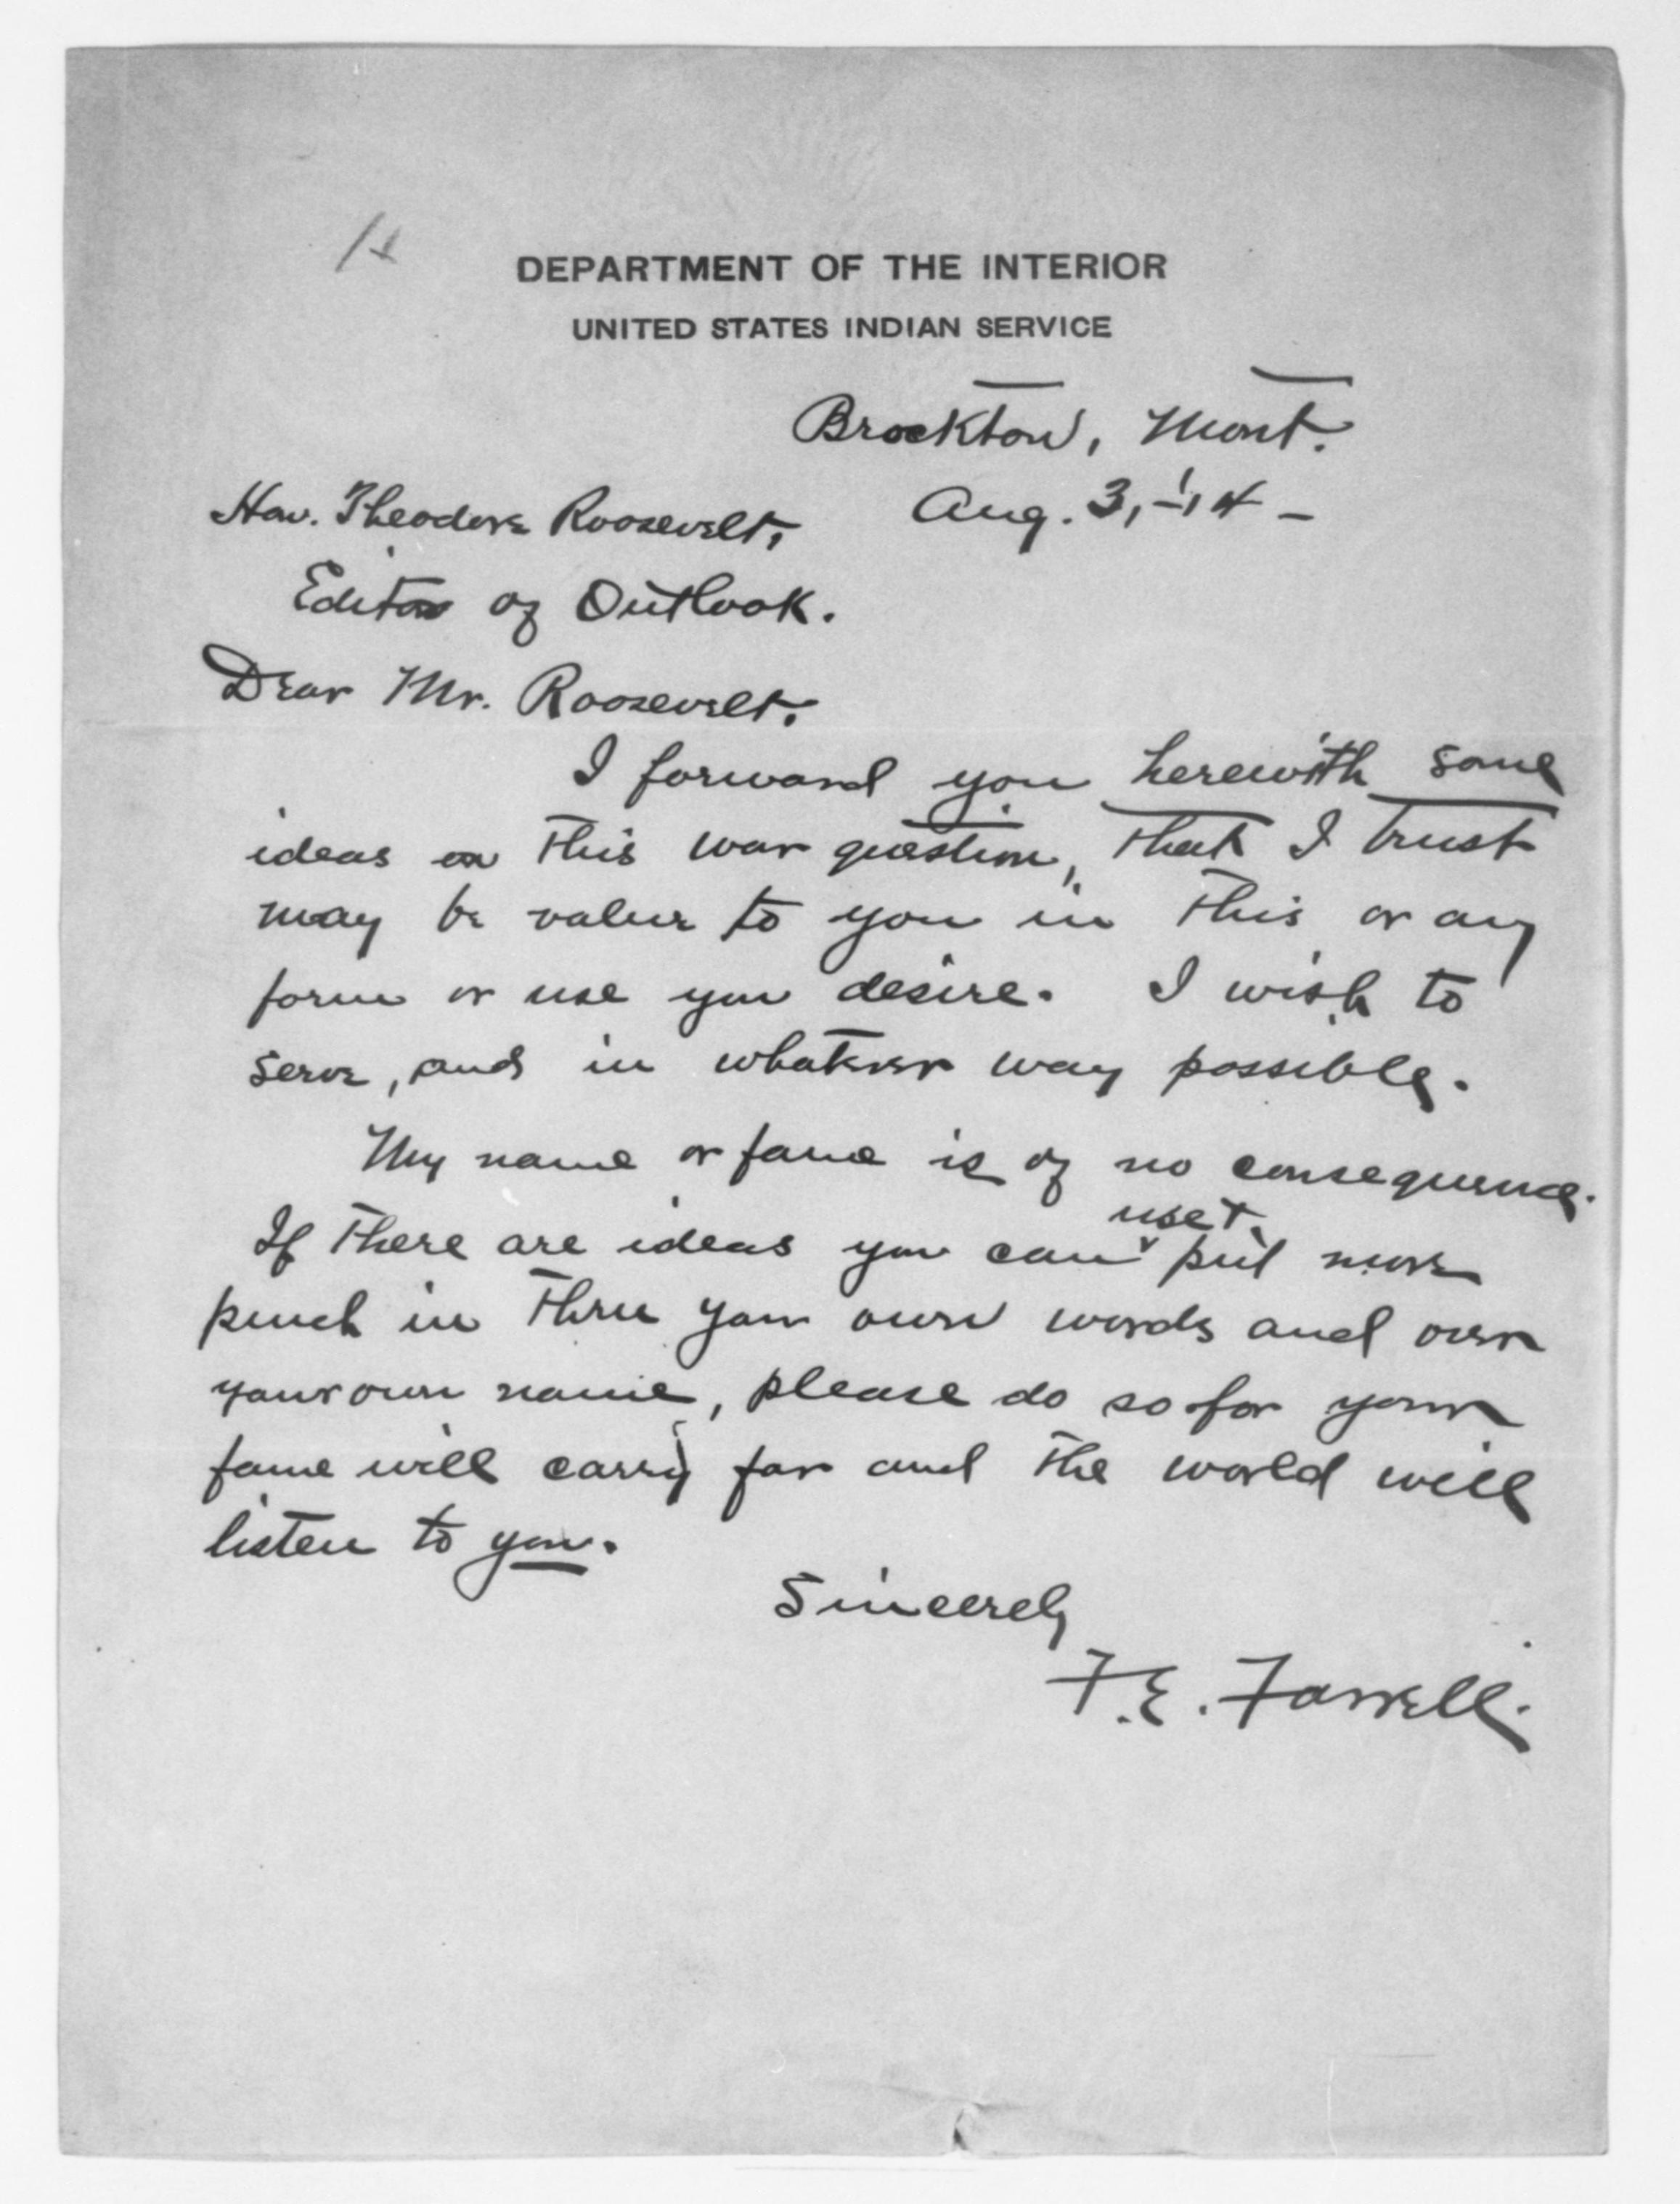 DEPARTMENT OF THE INTERIOR
UNITED STATES INDIAN SERVICE
Brockton, Mont.
Aug. 3, -'14-
Hon. Theodore Roosevelt,
Editor of Outlook.
Dear Mr. Roosevelt,
I forward you herewith some
ideas on this war question, that I trust
may be value to you in this or any
form or use you desire. I wish to
serve, and in whatever way possible.
My name or fame is of no consequence.
If there are ideas you can use &
put more
punch in thru your own words and over
your own name, please do so for your
fame will carry far and the world will
listen to you.
Sincerely
F. E. Farrell.